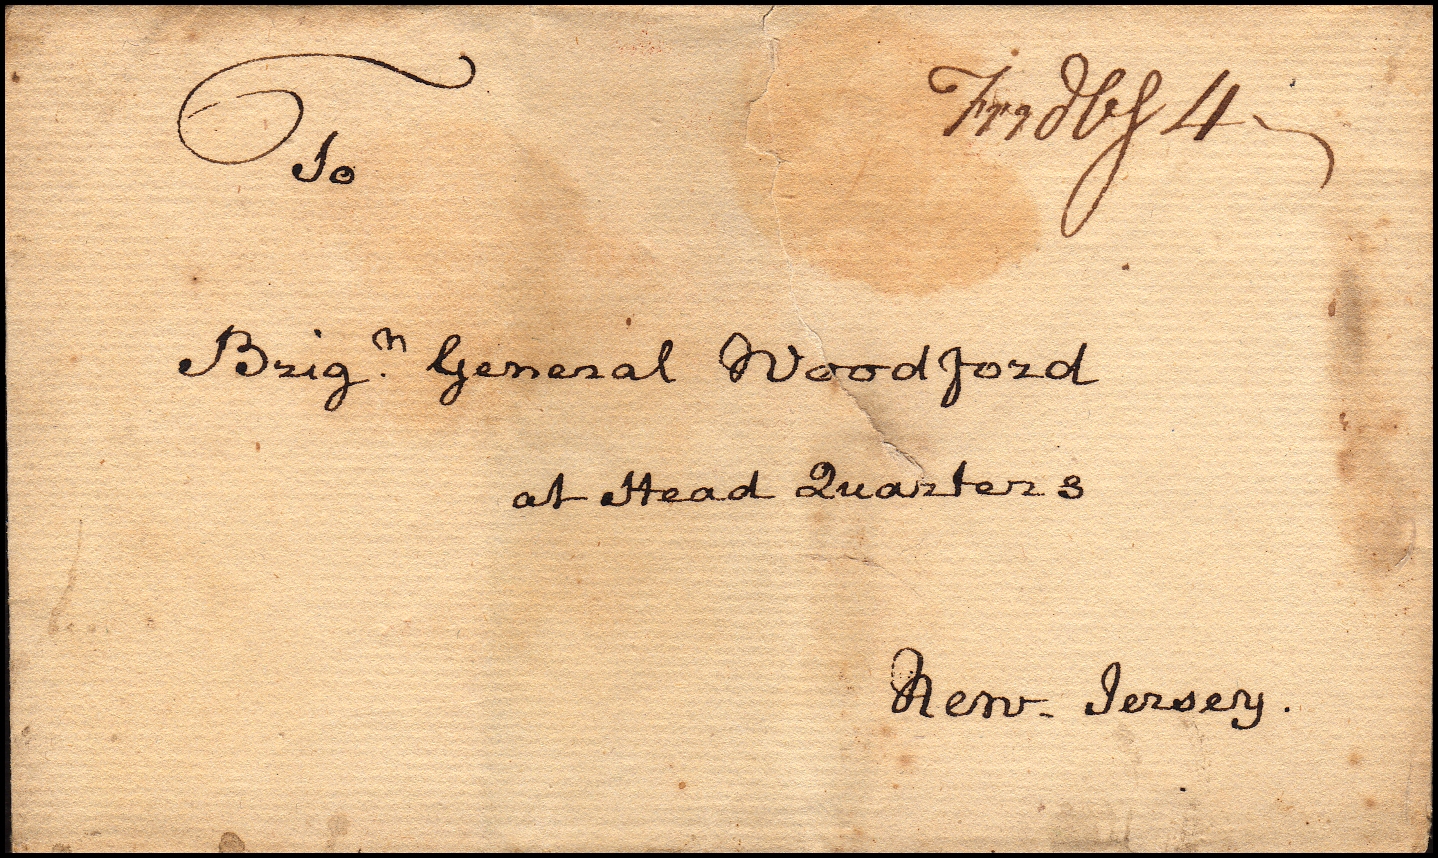 To
Brigⁿ. General Woodford
at Head Quarters
New-Jersey.